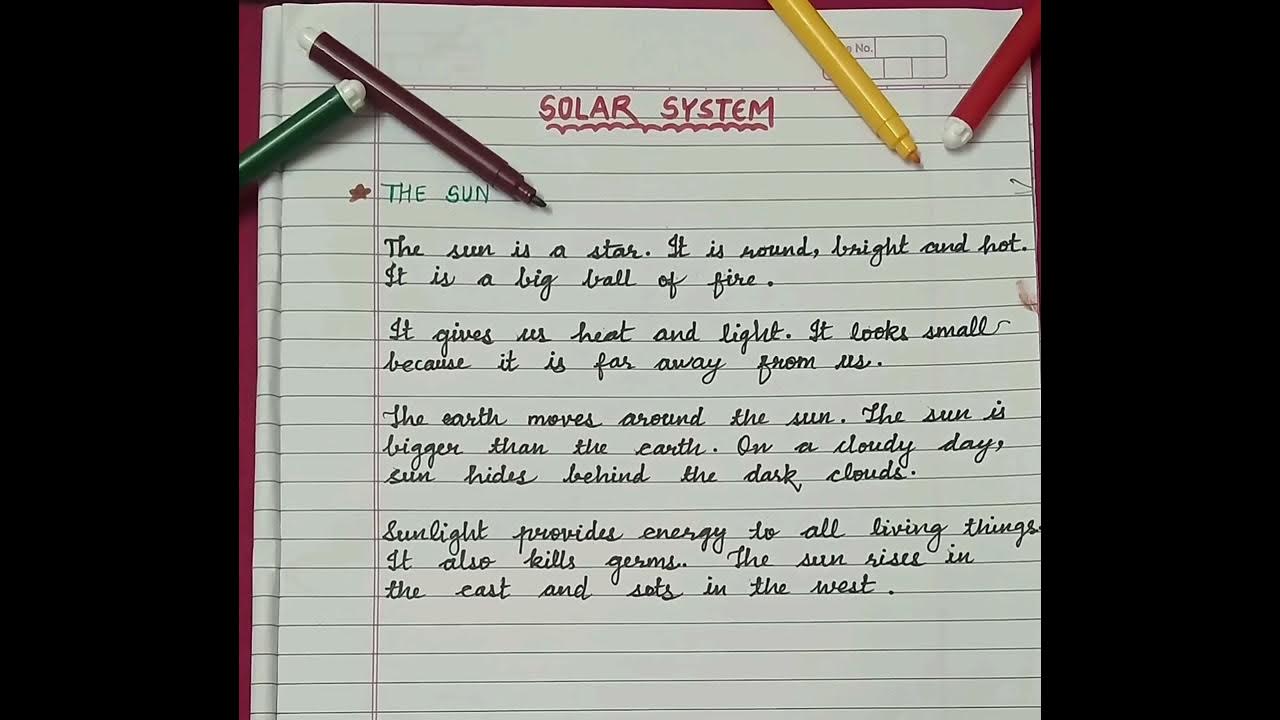 e No.
SOLAR SYSTEM
THE SUN
The sun is a star. It is round, bright and hot.
It is a big ball of fire.
It gives us heat and light. It looks small
because it is far away from us.
The earth moves around the sun. The sun is
bigger than the earth. On a cloudy day,
sun hides behind the dark clouds.
Sunlight provides energy to all living things.
It also kills germs.. The sun rises in
the east and sets in the west.